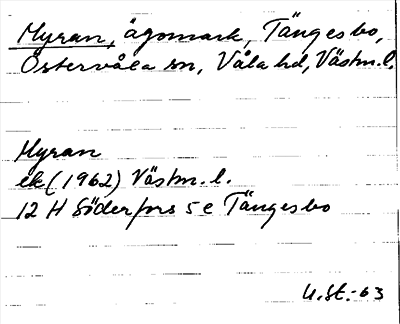 Myran, ägomark, Tängesbo,
Östervåla sn, Våla hd, Västm.l.
Myran
ek (1962) Västm.l.
12 H Söderfors 5 e Tängesbo
U.St.-63